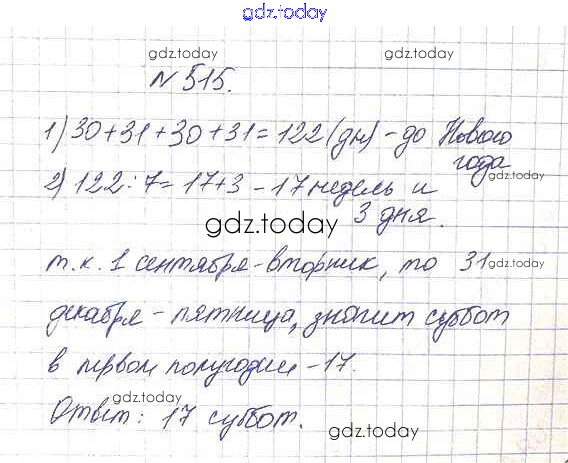 gdz.today
gdz.today gdz.today
№ 515.
1) 30+31+30+31=122 (дн) - до Нового
года
gdz.today
2) 122:7=17+3 - 17 недель и
3 дня.
gdz.today
т.к. 1 сентября - вторник, то 31
gdz.today
декабря - пятница, значит суббот
в первом полугодии - 17.
gdz.today
Ответ: 17 суббот.
gdz.today